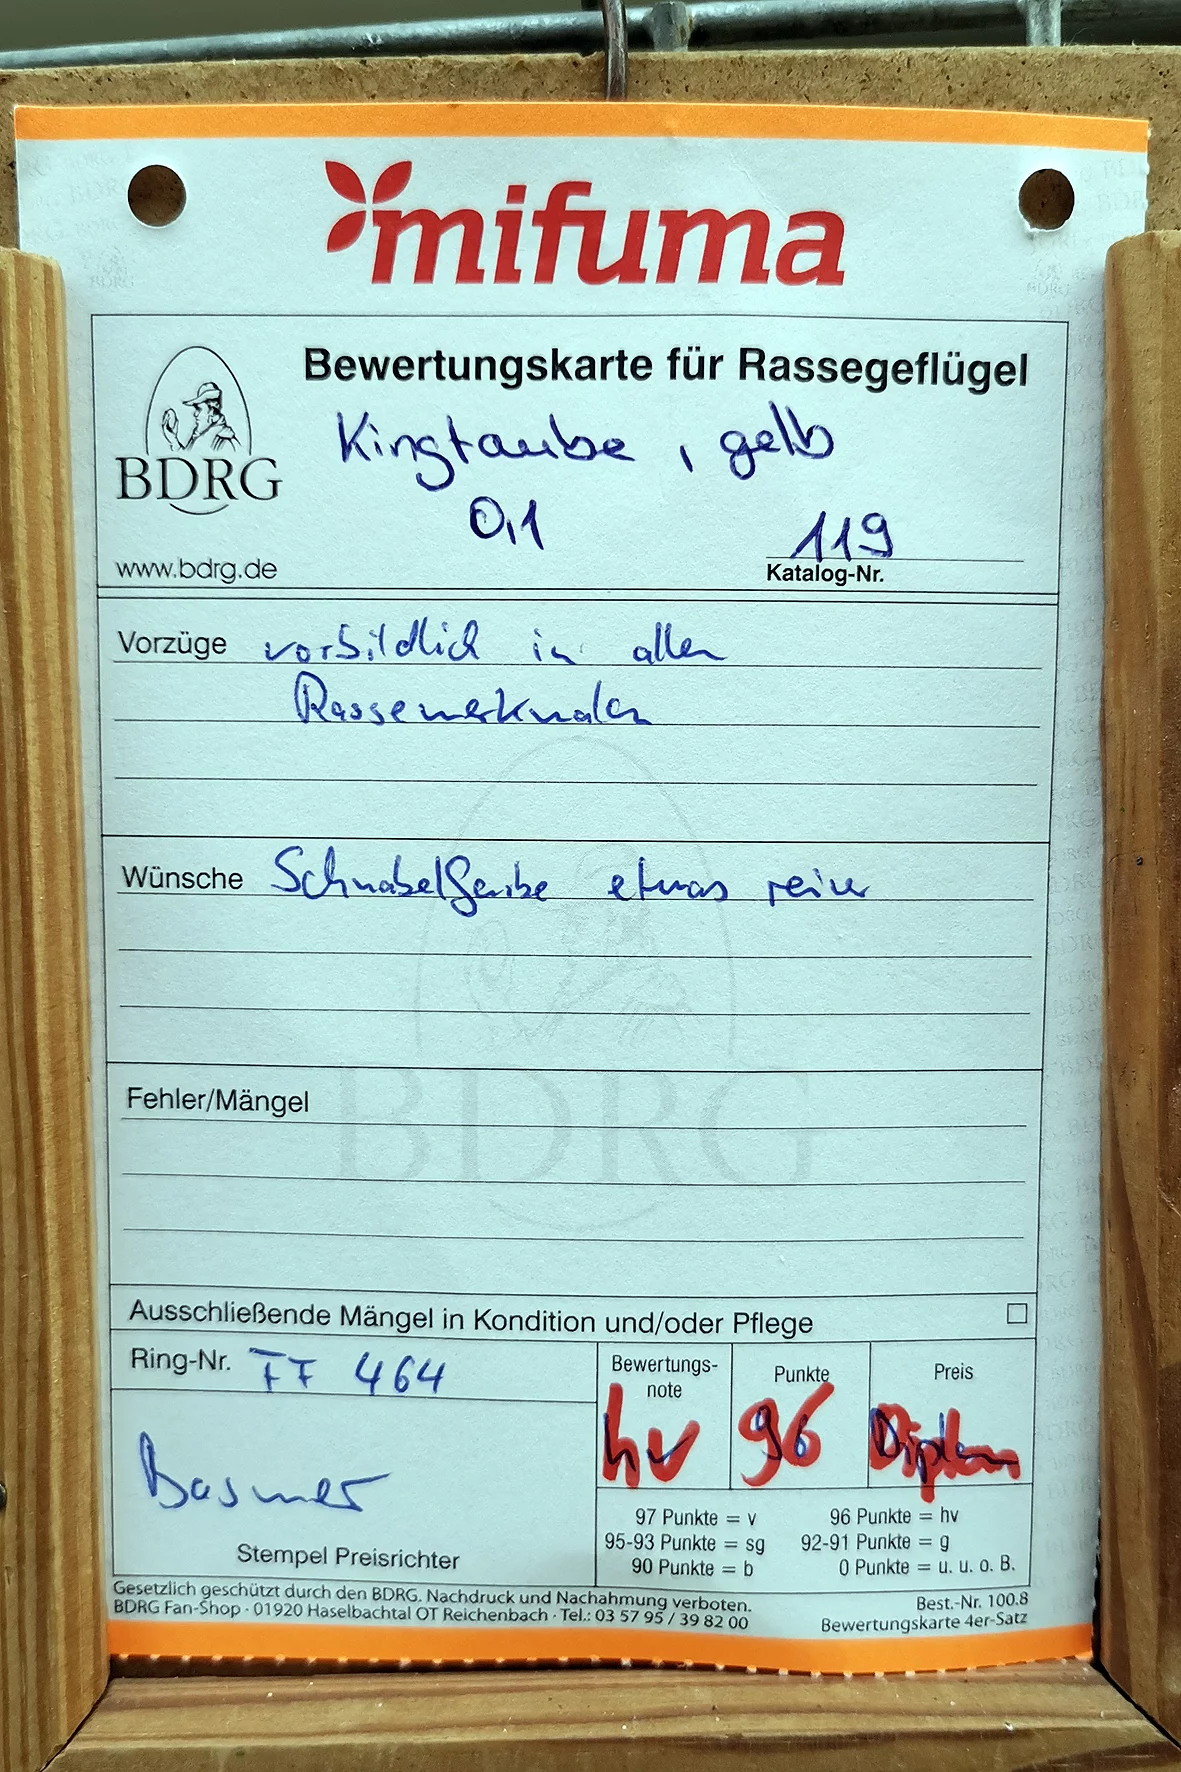 mifuma
Bewertungskarte für Rassegeflügel
Kingtaube, gelb
BDRG
0,1
119
www.bdrg.de
Katalog-Nr.
Vorzüge vorbildlich in allen
Rassemerkmalen
Wünsche Schnabelfarbe etwas reiner
Fehler/Mängel
BDRG
Ausschließende Mängel in Kondition und/oder Pflege
Ring-Nr. FF 464
Bewertungs-
note
Punkte
Preis
hv 96 Diplom
97 Punkte = v 96 Punkte = hv
95-93 Punkte = sg 92-91 Punkte = g
90 Punkte = b 0 Punkte = u. u. o. B.
Stempel Preisrichter
Gesetzlich geschützt durch den BDRG. Nachdruck und Nachahmung verboten.
BDRG Fan-Shop · 01920 Haselbachtal OT Reichenbach · Tel.: 03 57 95 / 39 82 00
Best.-Nr. 100.8
Bewertungskarte 4er-Satz